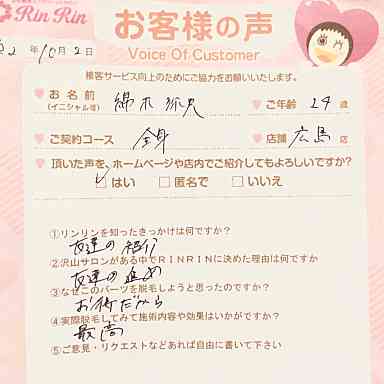 Rin Rin
お客様の声
Voice Of Customer
2年10月2日
接客サービス向上のためにご協力をお願いいたします。
お名前
(イニシャル可)
ご年齢 24 歳
ご契約コース 全身 店舗 広島 店
頂いた声を、ホームページや店内でご紹介してもよろしいですか?
はい 匿名で いいえ
①リンリンを知ったきっかけは何ですか?
友達の紹介
②沢山サロンがある中でRINRINに決めた理由は何ですか
友達の進め
③なぜこのパーツを脱毛しようと思ったのですか?
お得だから
④実際脱毛してみて施術内容や効果はいかがですか?
最高
⑤ご意見・リクエストなどあれば自由に書いて下さい